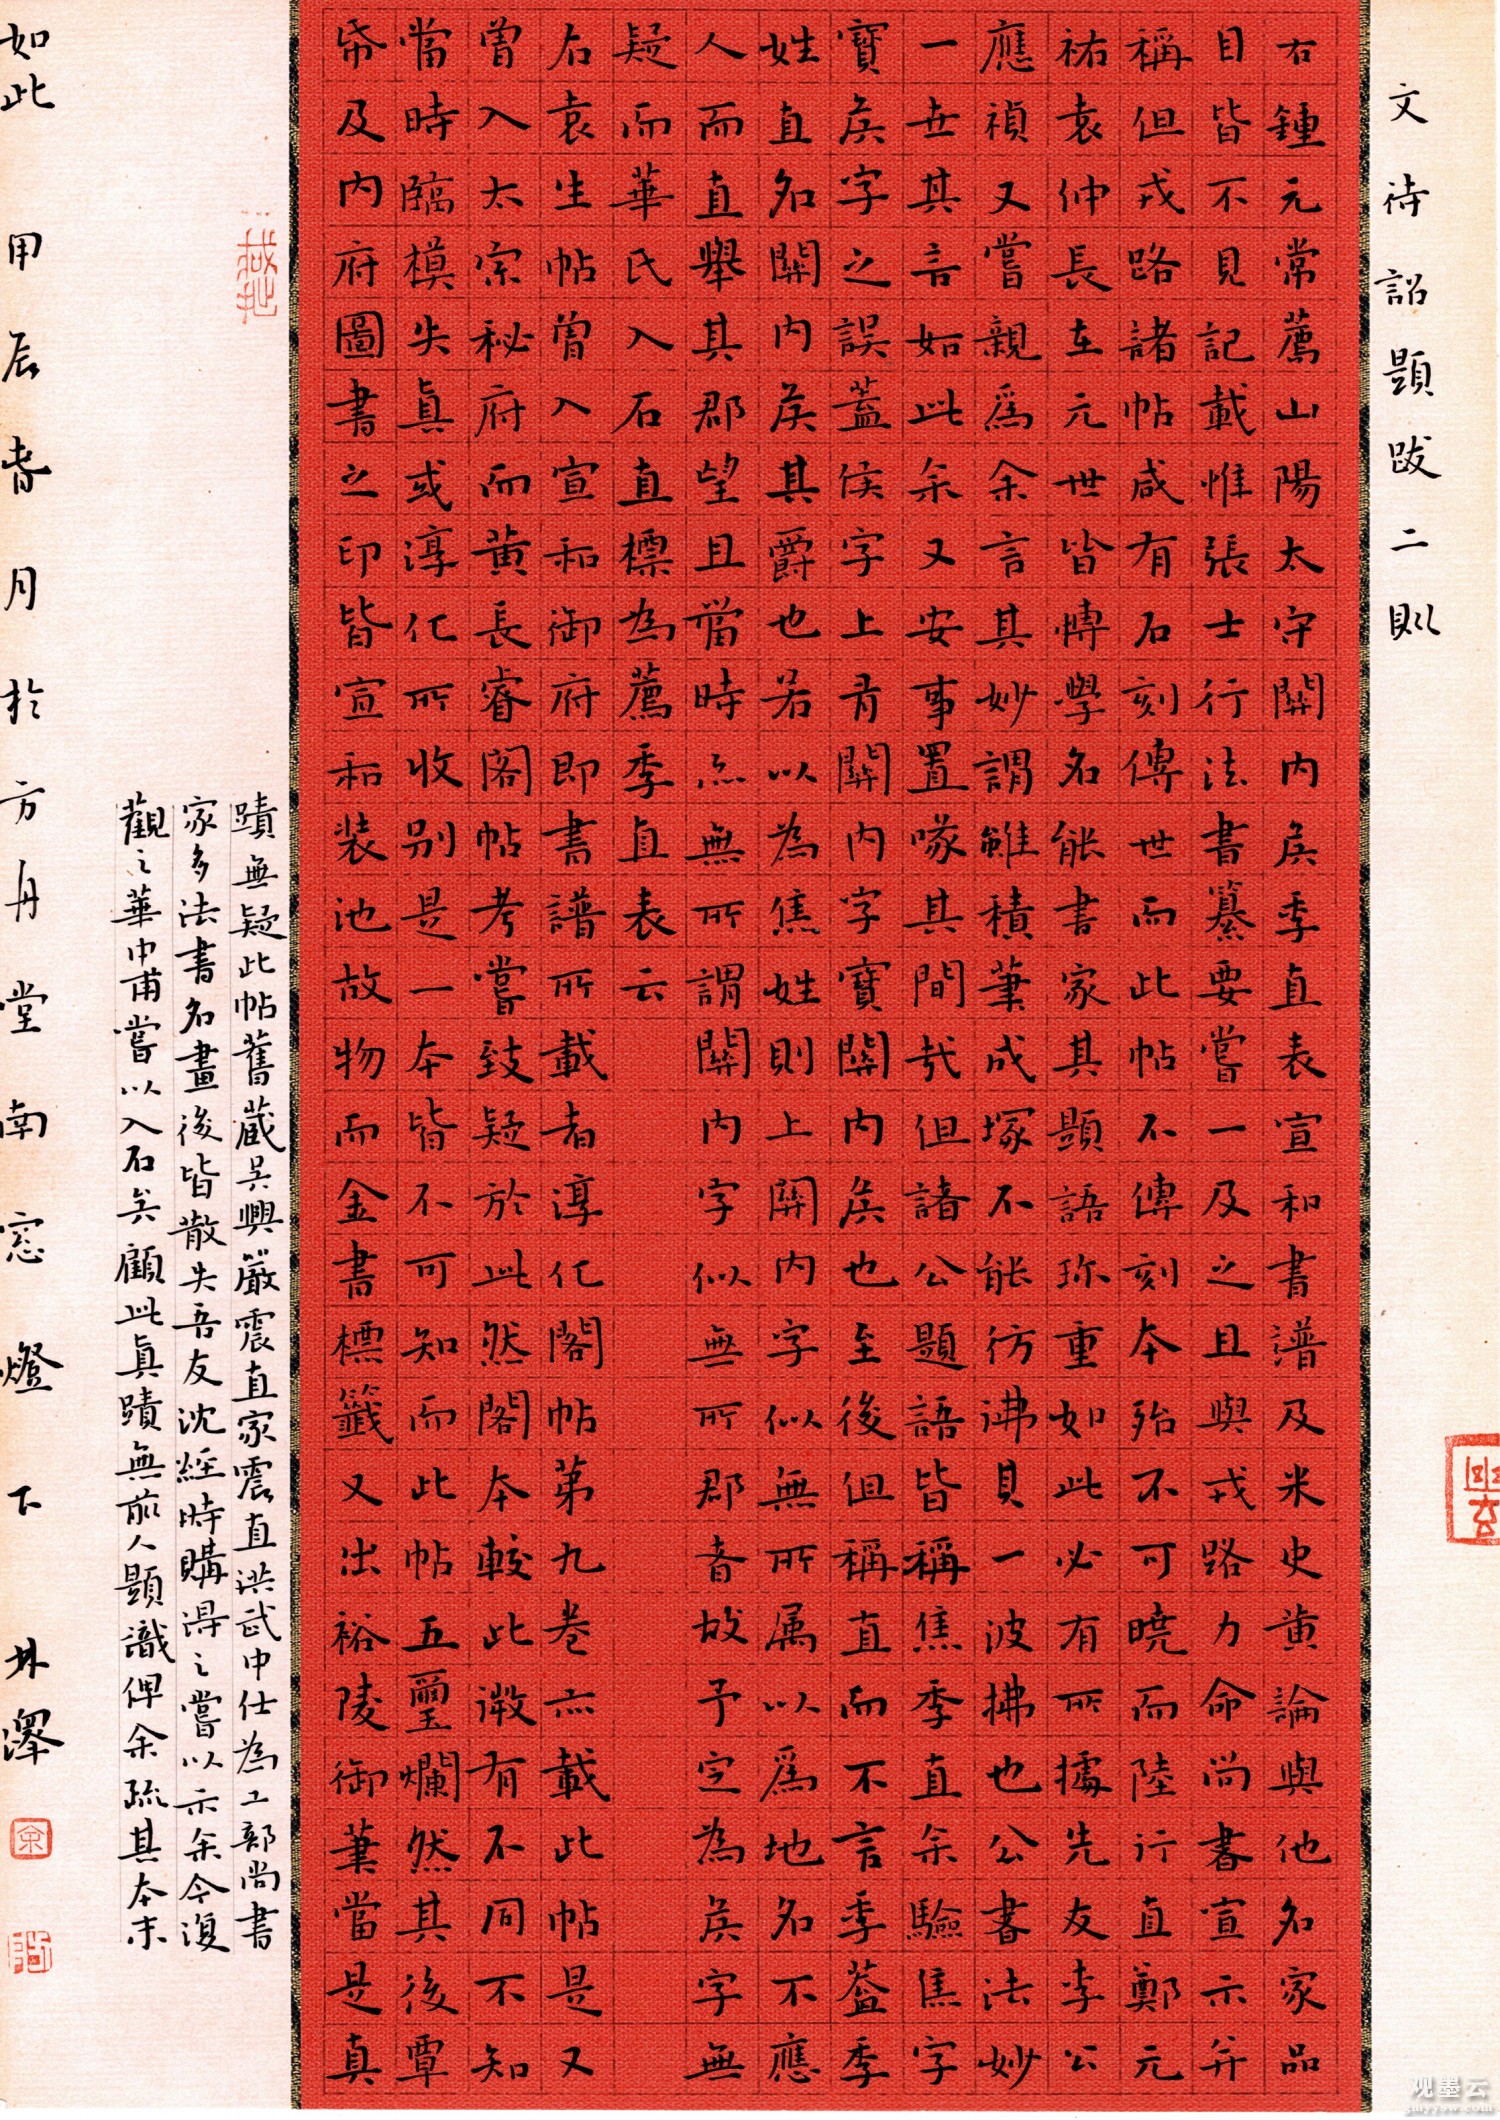 文待詔題跋二則
右鍾元常薦山陽太守關内矦季直表宣和書譜及米史黄論與他名家品
目皆不見記載惟張士行法書纂要嘗一及之且與戎路力命尚書宣示并
稱但戎路諸帖咸有石刻傳世而此帖不傳刻本殆不可曉而陸行直鄭元
祐袁仲長在元世皆博學名能書家其題語珎重如此必有所據先友李公
應禎又嘗親爲余言其妙謂雖積筆成塚不能彷彿一波拂也公書法妙
一世其言如此余又安事置喙其間哉但諸公題語皆稱焦季直余驗焦字
寶矦字之誤蓋侯字上有關内字寶關内矦也至後但稱直而不言季蓋季
姓直名關内矦其爵也若以為焦姓則上關内字似無所属以爲地名不應
人而直舉其郡望且當時亦無所謂關内字似無所郡者故予定為矦字無
疑而華氏入石直標為薦季直表云
右袁生帖曾入宣和御府即書譜所載者淳化閣帖第九卷亦載此帖是又
曾入太宗秘府而黄長睿閣帖考嘗致疑於此然閣本較此微有不同不知
當時臨模失真或淳化所收别是一本皆不可知而此帖五璽爛然其後覃
帋及内府圖書之印皆宣和裝池故物而金書標籤又出裕陵御筆當是真
蹟無疑此帖舊蔵吴興嚴震直家震直洪武中仕為工部尚書
家多法書名畫後皆散失吾友沈經時購得之嘗以示余今復
觀之華中甫嘗以入石矣顧此真蹟無前人題識俾余疏其本末
如此 甲辰春月於方舟堂南窓燈下 林澤
观墨云